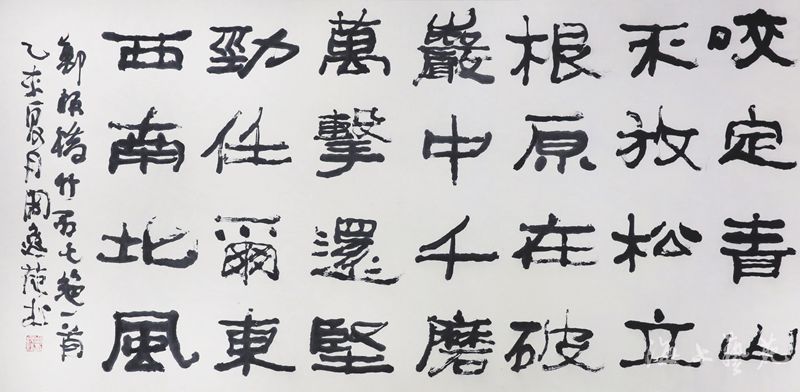 咬定青山
不放松立
根原在破
巖中千磨
萬擊還堅
勁任爾東
西南北風
鄭板橋竹石七絶一首
乙未夏月周